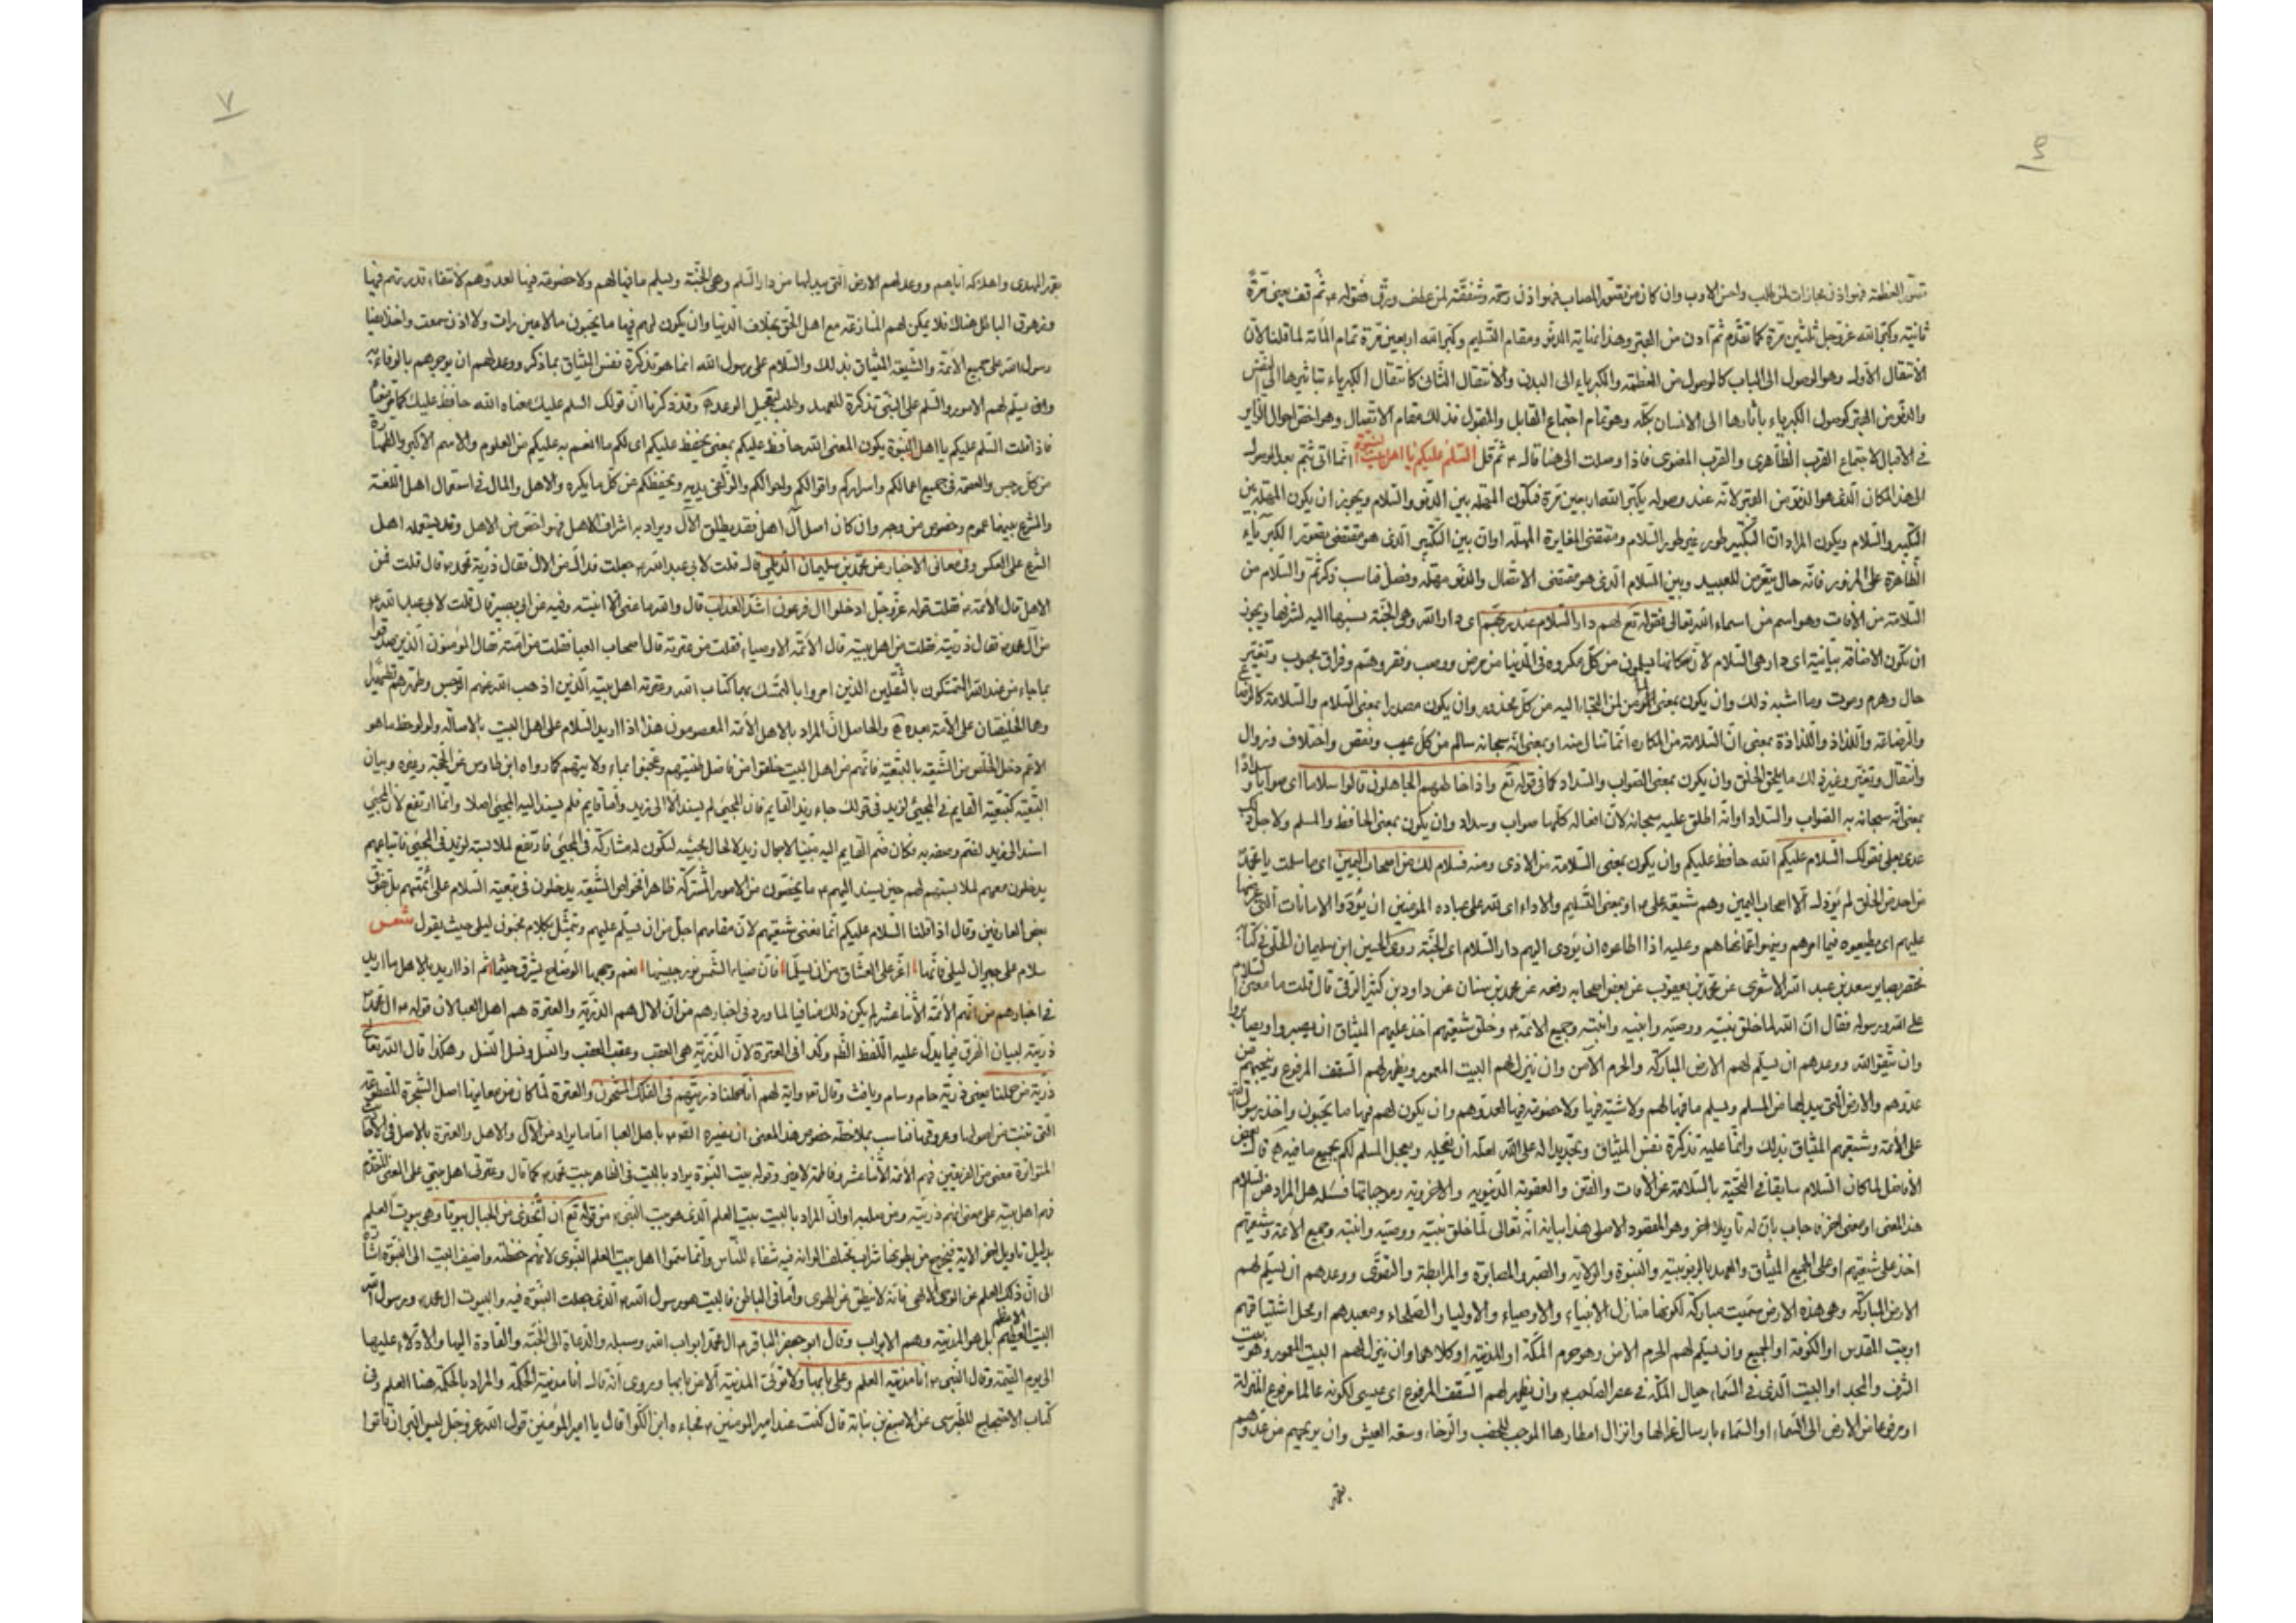 تصور العظمة فهو اذن مجازات لمن طلب واحسن الادب وان كان من تصور المصاب فهو اذن رحمة وشفقة لمن عطف ورق فقوله ثم قف يعنى مرة
ثانية وكبر الله عز وجل ثلثين مرة كما تقدم ثم ادن من القبر وهذا نهاية الدنو ومقام التسليم وكبر الله اربعين مرة تمام المأة لما قلنا لان
الانتقال الاول وهو الوصول الى الباب كالوصول من العظمة والكبرياء الى البدن والانتقال الثانى كانتقال الكبرياء بتاثيرها الى النفس
والدنو من القبر كوصول الكبرياء باثارها الى الانسان بكله وهو تمام اجتماع القابل والمقبول فذلك مقام الاتصال وهو اخص احوال الزاير
فى الاقبال لاجتماع القرب الظاهرى والقرب المعنوى فاذا وصلت الى هنا قال ثم قل السلام عليكم يا اهل بيت النبوة انما اتى بثم بعد الوصول
الى هذا المكان الذى هو الدنو من القبر لانه عند وصوله يكبر الله اربعين مرة فتكون المهلة بين الدنو والسلام ويجوز ان يكون المهلة بين
التكبير والسلام ويكون المراد ان التكبير طور غير طور السلام ومقتضى المغايرة المهلة او ان بين التكبير الذى هو مقتضى تصور الكبرياء
الظاهرة على المزور فانه حال يتعرض للعبيد وبين السلام الذى هو مقتضى الاتصال والدنو مهلة وفصل فناسب ذكر ثم والسلام من
السلامة من الافات وهو اسم من اسماء الله تعالى فقوله تع لهم دار السلام عند ربهم اى دار الله وهى الجنة نسبها اليه لشرفها ويجوز
ان تكون الاضافة بيانية اى دار هى السلام لان سكانها يسلمون من كل مكروه فى الدنيا من مرض ووصب وفقر وهم وفراق محبوب وتغير
حال وهرم وموت وما اشبه ذلك وان يكون بمعنى المؤمن لمن التجاء اليه من كل محذور وان يكون مصدرا بمعنى السلام والسلامة كالرضاع
والرضاعة واللذاذ واللذاذة بمعنى ان السلامة من المكاره انما تنال منه او بمعنى انه سبحانه سالم من كل عيب ونقص واختلاف وزوال
وانتقال وتغير وغير ذلك ما يلحق الخلق وان يكون بمعنى الصواب والسداد كما فى قوله تع واذا خاطبهم الجاهلون قالوا سلاما اى صوابا وسدادا
بمعنى انه سبحانه به الصواب والسداد او انه اطلق عليه سبحانه لان افعاله كلها صواب وسداد وان يكون بمعنى الحافظ والمسلم ولاجل ذلك
عدى بعلى فقولك السلام عليكم الله حافظ عليكم وان يكون بمعنى السلامة من الاذى ومنه فسلام لك من اصحاب اليمين اى ما سلمت يا محمد
من احد من الخلق لم يؤذك الا اصحاب اليمين وهم شيعة على او بمعنى التسليم والاداء اى لله على عباده المؤمنين ان يؤدوا الامانات التى
عليهم اى يطيعوه فيما امرهم وينهوا عما نهاهم وعليه اذا اطاعوه ان يؤدى اليهم دار السلام اى الجنة روى الحسن ابن سليمان الحلى فى كتابه
مختصر بصاير سعد بن عبد الله الاشعرى عن محمد بن يعقوب عن بعض اصحابه رفعه عن محمد بن سنان عن داود بن كثير الرقى قال قلت ما معنى السلام
على الله ورسوله فقال ان الله لما خلق نبيه ووصيه وابنيه وابنته وجميع الائمة وخلق شيعتهم اخذ عليهم الميثاق ان يصبروا ويصابروا
وان يتقوا الله ووعدهم ان يسلم لهم الارض المباركة والحرم الامن وان ينزل لهم البيت المعمور ويظهر لهم السقف المرفوع وينجيهم من
عدوهم والارض التى يبدلها من السلم ويسلم ما فيها لهم ولا شية فيها ولا خصومة فيها لعدوهم وان يكون لهم فيها ما يحبون واخذ رسول الله
على الائمة وشيعتهم الميثاق بذلك وانما عليه تذكرة نفس الميثاق وتجديدا له على الله لعله ان يعجله ويعجل المسلم لكم بجميع ما فيه قال بعض
الافاضل لما كان السلام سابقا فى التحية بالسلامة عن الافات والفتن والعقوبة الدنيوية والاخروية وموجباتها فسئله هل المراد من السلام
هذا المعنى او معنى اخر فاجاب بان له تاويلا اخر وهو المقصود الاصلى هنا بيانه انه تعالى لما خلق نبيه ووصيه وابنته وجميع الائمة وشيعتهم
اخذ على شيعتهم او على الجميع الميثاق والعهد بالربوبية والنبوة والولاية والصبر والمصابرة والمرابطة والتقوى ووعدهم ان يسلم لهم
الارض المباركة وهى هذه الارض سميت مباركة لكونها منازل الانبياء والاوصياء والاولياء والصلحاء ومعبدهم او محل اشتياقهم
او بيت المقدس او الكوفة او الجميع وان يسلم لهم الحرم الامن وهو حرم المكة او المدينة او كلاهما وان ينزل لهم البيت المعمور وهو بيت
الشرف والمجد او البيت الذى فى السماء حيال المكة فى عصر الصاحب وان يظهر لهم السقف المرفوع اى عيسى لكونه عالما مرفوع المنزلة
او مرفوعا من الارض الى السماء او السماء بارسال غزالها وانزال امطارها الموجب للخصب والرخاء وسعة العيش وان يريحهم من عدوهم
بقهر
بقهر المهدى واهلاكه اياهم ووعد لهم الارض التى يبدلها من دار السلم وهى الجنة ويسلم ما فيها لهم ولا خصومة فيها لعدوهم لانتفاء قدرتهم فيها
وزهوق الباطل هناك فلا يمكن لهم المنازعة مع اهل الحق بخلاف الدنيا وان يكون لهم فيها ما يحبون مالا عين رات ولا اذن سمعت واخذ ايضا
رسول الله على جميع الائمة والشيعة الميثاق بذلك والسلام على رسول الله انما هو تذكرة نفس الميثاق بما ذكر ووعد لهم ان يوجرهم بالوفاء به
وان يسلم لهم الامور والسلم على النبى تذكرة للعهد وطلب لتعجيل الوعد وقد ذكرنا ان قولك السلم عليك معناه الله حافظ عليك
فاذا قلت السلم عليكم يا اهل النبوة يكون المعنى الله حافظ عليكم بمعنى يحفظ عليكم اى لكم ما انعم به عليكم من العلوم والاسم الاكبر والطهارة
من كل رجس والعصمة فى جميع اعمالكم واسراركم واقوالكم واحوالكم والزلفى لديه ويحفظكم من كل ما يكره والاهل والمال فى استعمال اهل اللغة
والشرع بينهما عموم وخصوص من وجه وان كان اصل آل اهل فقد يطلق الآل ويراد به اشراف الاهل فهو اخص من الاهل وقد يستعمله اهل
الشرع على العكس وفى معانى الاخبار عن محمد بن سليمان الديلمى قال قلت لابى عبد الله جعلت فداك من الال فقال ذرية محمد قال قلت فمن
الاهل قال الائمة فقلت قوله عز وجل ادخلوا ال فرعون اشد العذاب قال والله ما عنى الا ابنته وفيه عن ابى بصير قال قلت لابى عبد الله
من آل محمد فقال ذريته فقلت من اهل بيته قال الائمة الاوصياء فقلت من عترته قال اصحاب العبا فقلت من امته فقال المؤمنون الذين صدقوا
بما جاء من عند الله المتمسكون بالثقلين الذين امروا بالتمسك بهما كتاب الله وعترته اهل بيته الذين اذهب الله عنهم الرجس وطهرهم تطهيرا
وهما الخليفتان على الامة بعده والحاصل ان المراد بالاهل الائمة المعصومون هذا اذا اريد السلام على اهل البيت بالاصالة ولو لوحظ ما هو
الاعم دخل الخلص من الشيعة بالتبعية فانهم من اهل البيت خلقوا من فاضل طينتهم وعجنوا بماء ولايتهم كما رواه ابن طاوس عن الحجة وغيره وبيان
التبعية كتبعية القايم فى المجيئ لزيد فى قولك جاء زيد القايم فان المجيئ لم يسند الا الى زيد واما قايم فلم يسند اليه المجيئ اصلا وانما ارتفع لان المجيئ
اسند الى زيد لفتم وصفه به فكان ضم القايم اليه مبنيا لاجمال زيد لا لحال مجيئه لتكون له مشاركة فى المجيئ فارتفع لملابسته لزيد فى المجيئ فاتباعهم
يدخلون معهم لملابستهم لهم حين يسند اليهم ما يختصون من الامور المشتركة ظاهرا فخواص الشيعة يدخلون فى تبعية السلام على ائمتهم بل ترقى
بعض العارفين وقال اذا قلنا السلام عليكم انما نعنى شيعتهم لان مقامهم اجل من ان يسلم عليهم وتمثل بكلام مجنون ليلى حيث يقول شعر
سلام على جيران ليلى فانها اعز على العشاق من ان يسلما فان ضياء الشمس نور جبينها نعم وجهها الوضاح يشرق حيثما ثم اذا اريد بالاهل ما اريد
فى اخبارهم من انهم الائمة الاثنا عشر لم يكن ذلك منافيا لما ورد فى اخبارهم من ان الال هم الذرية والعترة هم اهل العبا لان قوله ال محمد
ذريته لبيان الفرق فيما يدل عليه اللفظ وكذا فى العترة لان الذرية هى العقب وعقب العقب والنسل ونسل النسل وهكذا قال الله تعالى
ذرية من حملنا يعنى ذرية حام وسام ويافث وقال تع واية لهم انا حملنا ذريتهم فى الفلك المشحون والعترة لما كان من معانيها اصل الشجرة المقطوعة
التى تنبت من اصولها وعروقها فناسب بملاحظة خصوص هذا المعنى ان يعبره باهل العبا اما ما يراد من الآل والاهل والعترة بالاصل فى
المتواترة معنى من الفريقين فهم الائمة الاثنا عشر وفاطمة لا غير وقوله بيت النبوة يراد بالبيت فى الظاهر بيت محمد كما قال وعترتى اهل بيتى على المعنى المتقدم
فهم اهل بيته على معنى انهم ذريته ومن صلبه او ان المراد بالبيت بيت العلم الذى هو بيت النبى من قوله تع ان اتخذى من الجبال بيوتا وهى بيوت العلم
بدليل تاويل اخر الاية يخرج من بطونها شراب مختلف الوانه فيه شفاء للناس وانما سموا اهل بيت العلم النبوى لانهم حفظته واضيف البيت الى النبوة اشارة
الى ان ذلك العلم عن الوحى الالهى فانه لا ينطق عن الهوى واما فى الباطن فالبيت هو رسول الله الذى جعلت النبوة فيه والبيوت ال محمد ورسول الله
البيت الاعظم بل هو المدينة وهم الابواب وقال ابو جعفر الباقر ال محمد ابواب الله وسبله والدعاة الى الجنة والقادة اليها والادلاء عليها
الى يوم القيمة وقال النبى انا مدينة العلم وعلى بابها ولا تؤتى المدينة الا من بابها وروى انه قال انا مدينة الحكمة والمراد بالحكمة هنا العلم وفى
كتاب الاحتجاج للطبرسى عن الاصبغ بن نباتة قال كنت عند امير المومنين فجاءه ابن الكوا قال يا امير المؤمنين قول الله عز وجل ليس البر ان تاتوا
٧